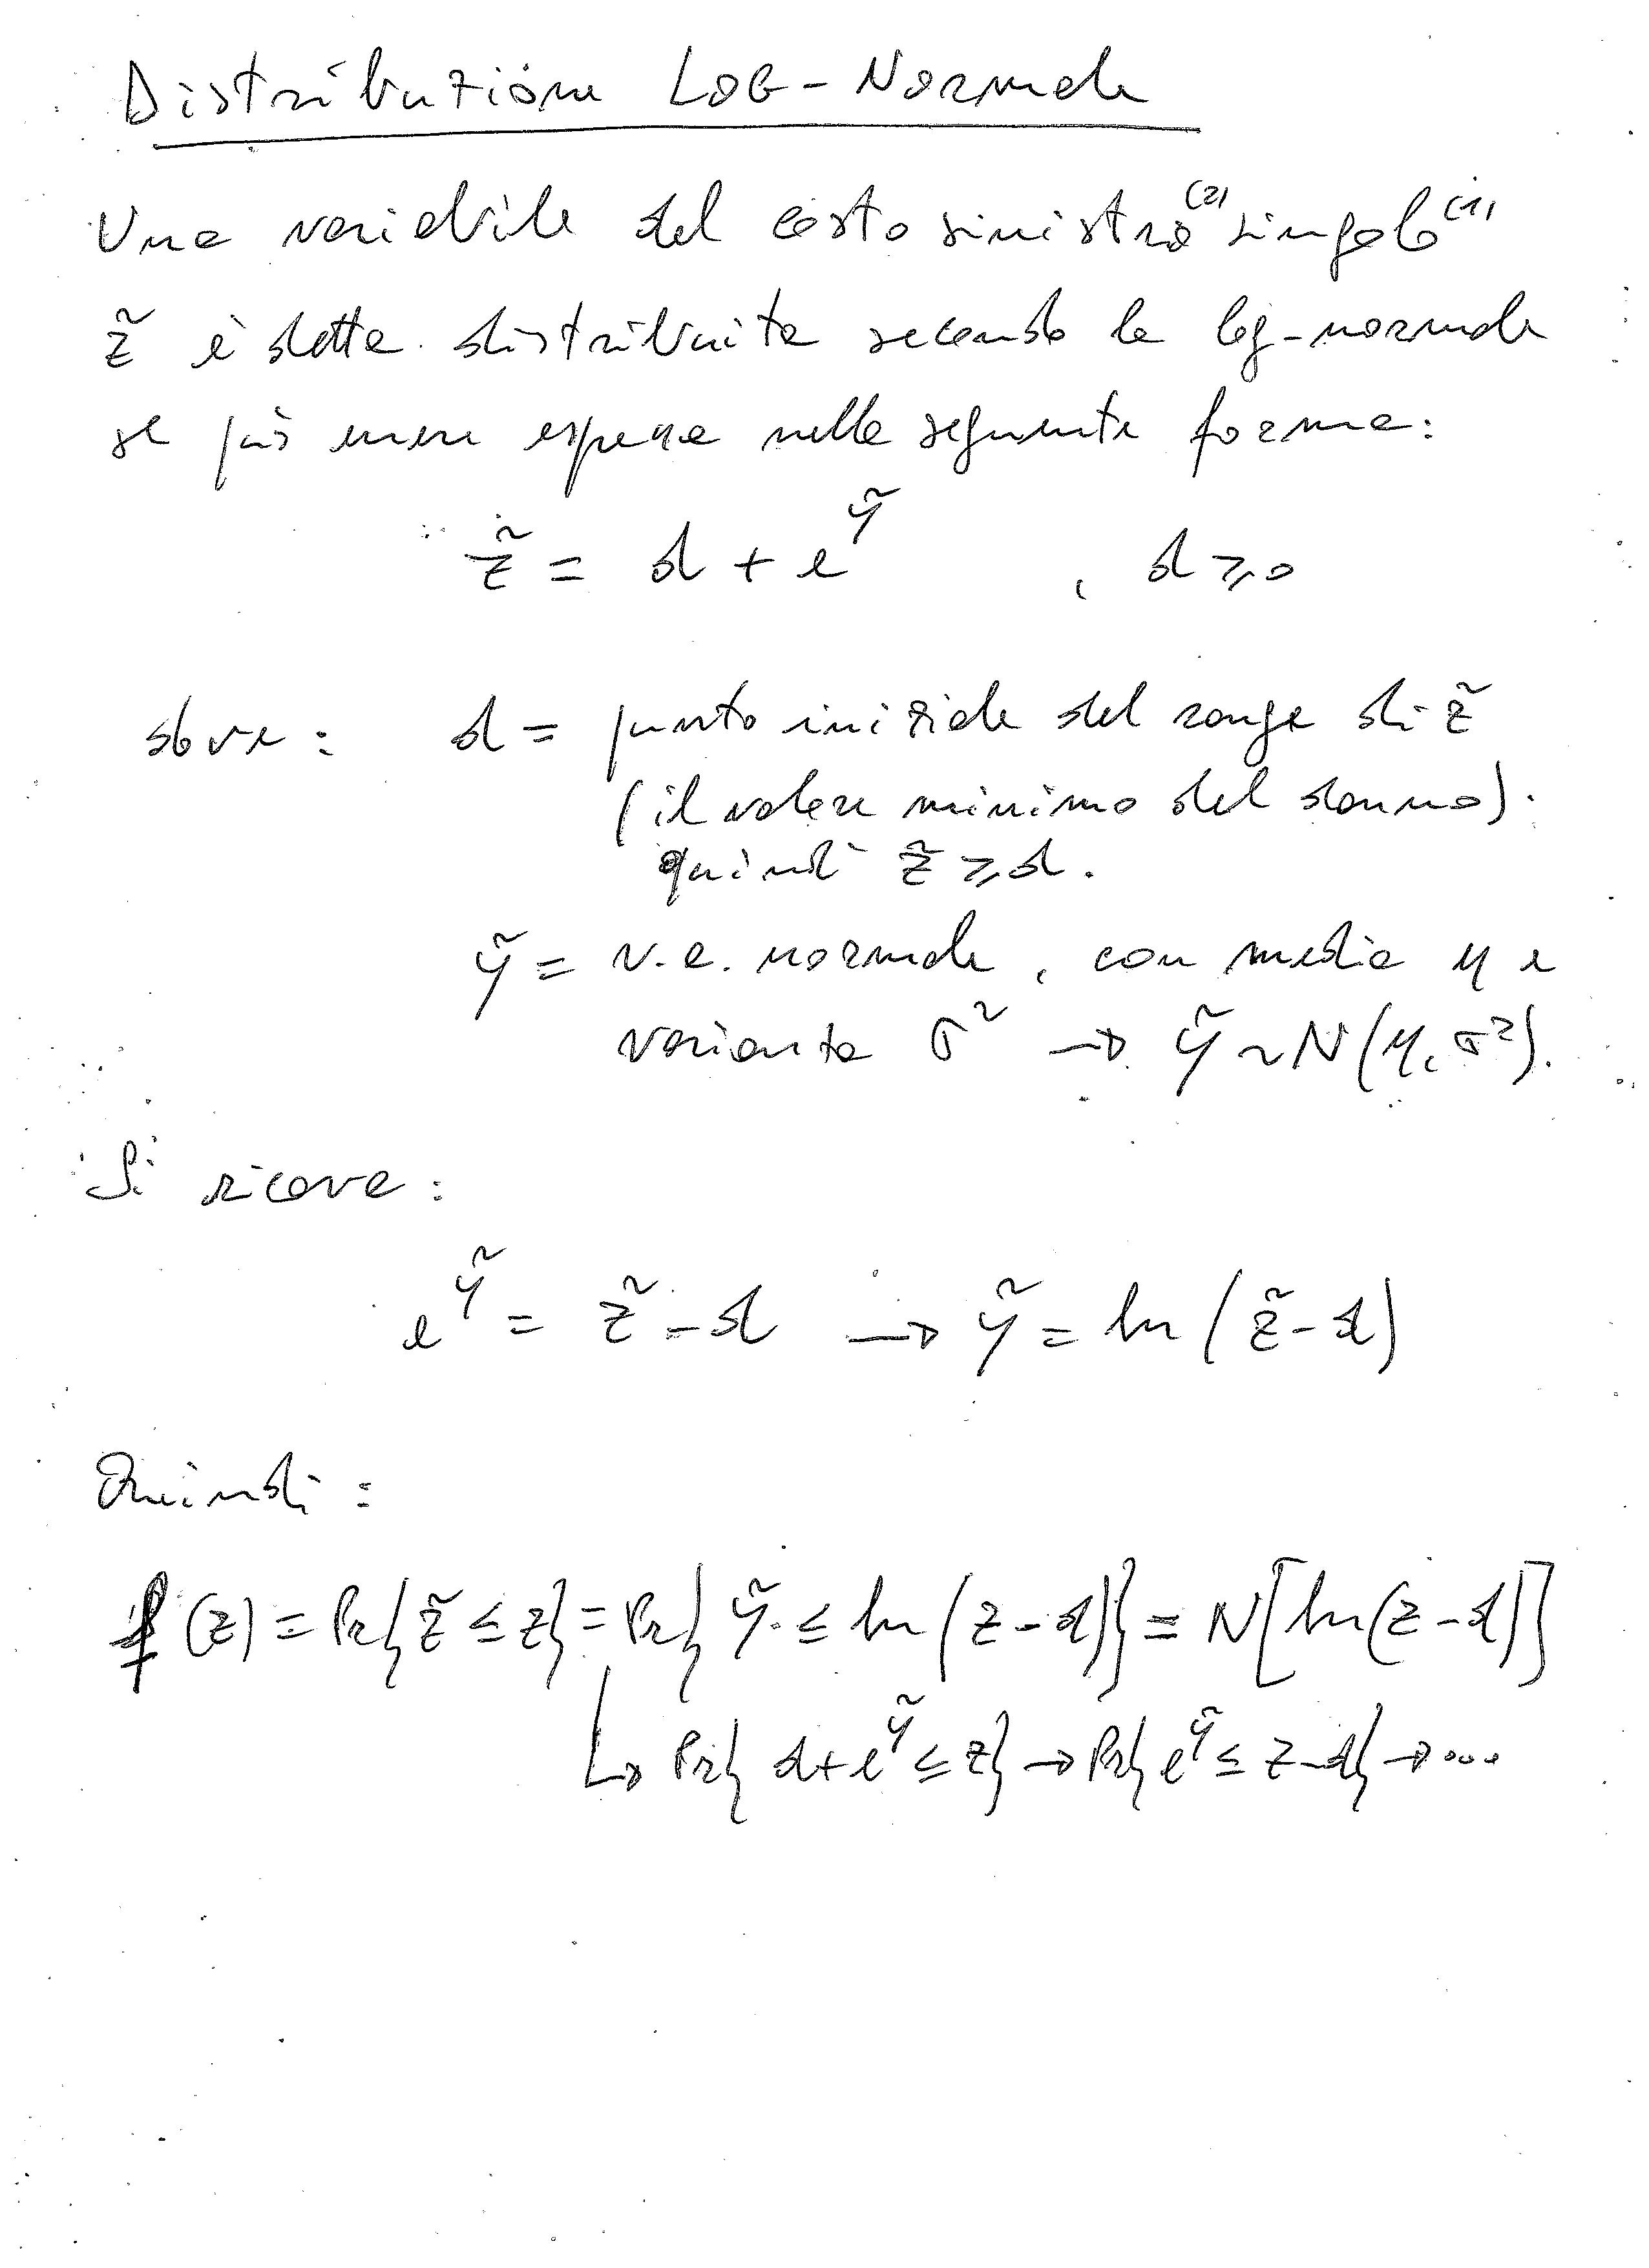 Distribuzione LOG-Normale
Una variabile del costo sinistro⁽²⁾ singolo⁽¹⁾
z̃ è detta distribuita secondo la log-normale
se può essere espressa nella seguente forma:
z̃ = d + e^ỹ , d ≥ 0
dove: d = punto iniziale del range di z̃
(il valore minimo del danno).
quindi z̃ ≥ d.
ỹ = v.a. normale, con media μ e
varianza σ² → ỹ ~ N(μ, σ²).
Si ricava:
e^ỹ = z̃ - d → ỹ = ln(z̃ - d)
Quindi:
f(z) = Pr{z̃ ≤ z} = Pr{ỹ ≤ ln(z - d)} = N[ln(z - d)]
↳ Pr{d + e^ỹ ≤ z} → Pr{e^ỹ ≤ z - d} → ...